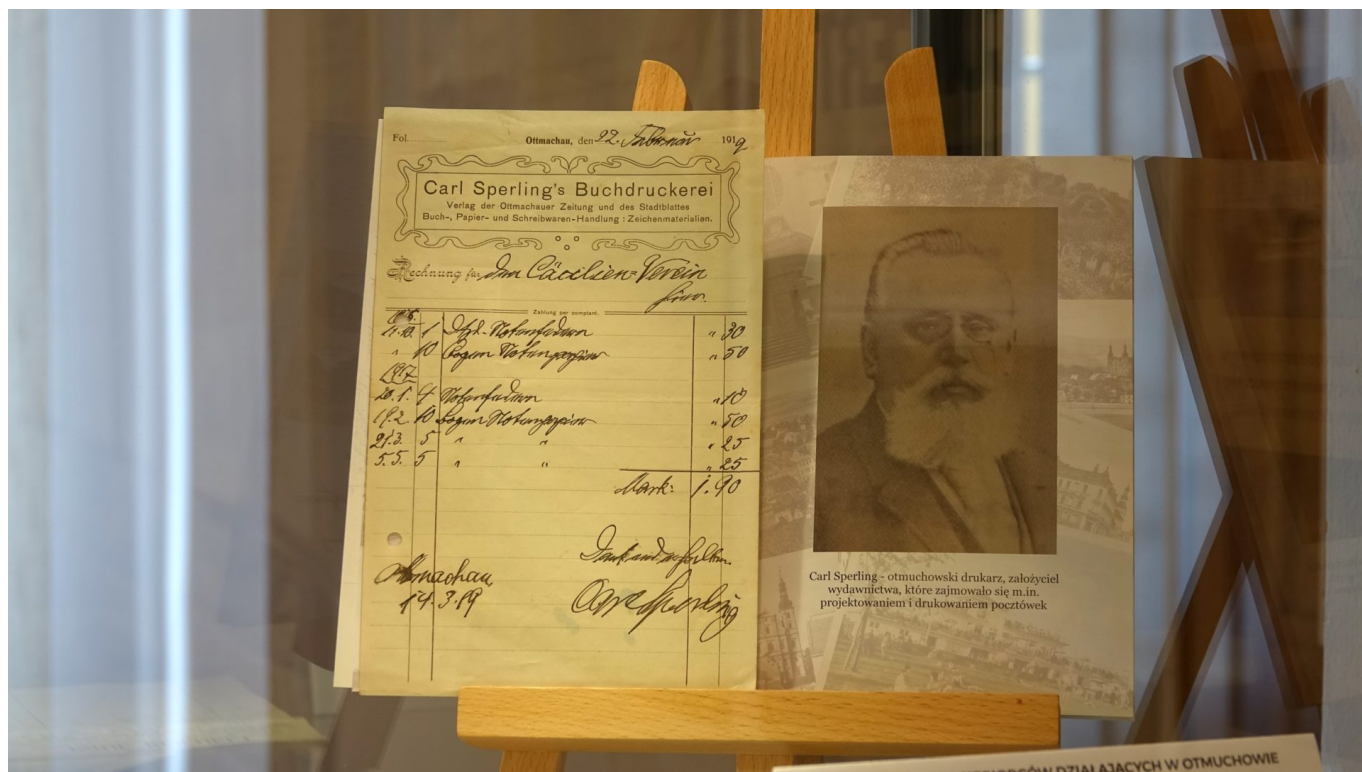 Fol.
Ottmachau, den 22. Februar 1919
Carl Sperling's Buchdruckerei
Verlag der Ottmachauer Zeitung und des Stadtblattes
Buch-, Papier- und Schreibwaren-Handlung : Zeichenmaterialien.
Rechnung für den Cäcilien-Verein
hier.
Zahlung per comptant.
11.10. 1 Dtzd. Notenfedern " 30
" 10 Bogen Notenpapier " 50
1917
20.1. 4 Notenfedern " 10
19.2. 10 Bogen Notenpapier " 50
21.3. 5 " " " 25
5.5. 5 " " " 25
Mark: 1.90
Dankend erhalten.
Ottmachau
14.3.19
Carl Sperling
Carl Sperling - otmuchowski drukarz, założyciel
wydawnictwa, które zajmowało się m.in.
projektowaniem i drukowaniem pocztówek
DZIAŁAJĄCYCH W OTMUCHOWIE